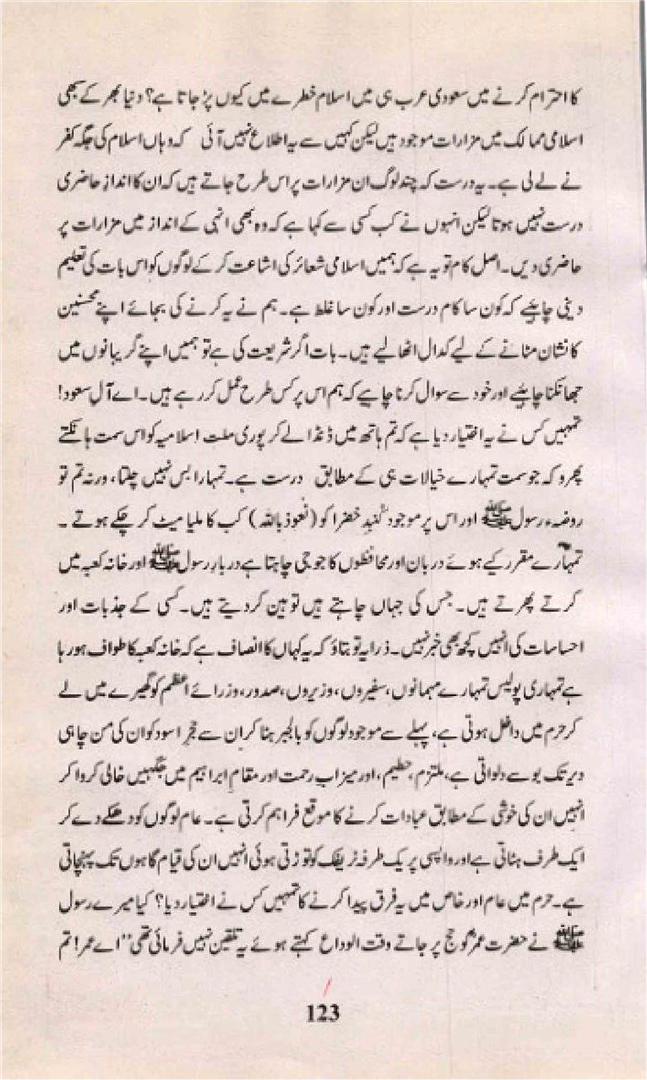 کا احترام کرنے میں سعودی عرب ہی میں اسلام خطرے میں کیوں پڑ جاتا ہے؟ دنیا بھر کے بھی
اسلامی ممالک میں مزارات موجود ہیں لیکن کہیں سے یہ اطلاع نہیں آئی کہ وہاں اسلام کی جگہ کفر
نے لے لی ہے۔ یہ درست کہ چند لوگ ان مزارات پر اس طرح جاتے ہیں کہ ان کا انداز حاضری
درست نہیں ہوتا لیکن انہوں نے کب کسی سے کہا ہے کہ وہ بھی انہی کے انداز میں مزارات پر
حاضری دیں۔ اصل کام تو یہ ہے کہ ہمیں اسلامی شعائر کی اشاعت کر کے لوگوں کو اس بات کی تعلیم
دینی چاہیئے کہ کون سا کام درست اور کون سا غلط ہے۔ ہم نے یہ کرنے کی بجائے اپنے محسنین
کا نشان مٹانے کے لیے کدال اٹھا لیے ہیں۔ بات اگر شریعت کی ہے تو ہمیں اپنے گریبانوں میں
جھانکنا چاہیئے اور خود سے سوال کرنا چاہیے کہ ہم اس پر کس طرح عمل کر رہے ہیں۔ اے آلِ سعود!
تمہیں کس نے یہ اختیار دیا ہے کہ تم ہاتھ میں ڈنڈا لے کر پوری ملت اسلامیہ کو اس سمت ہانکتے
پھرو کہ جو سمت تمہارے خیالات ہی کے مطابق درست ہے۔ تمہارا بس نہیں چلتا، ورنہ تم تو
روضہء رسول ﷺ اور اس پر موجود گنبدِ خضرا کو (نعوذ باللہ) کب کا ملیا میٹ کر چکے ہوتے۔
تمہارے مقرر کیے ہوئے دربان اور محافظوں کا جو جی چاہتا ہے دربارِ رسول ﷺ اور خانہ کعبہ میں
کرتے پھرتے ہیں۔ جس کی جہاں چاہتے ہیں توہین کر دیتے ہیں۔ کسی کے جذبات اور
احساسات کی انہیں کچھ بھی خبر نہیں۔ ذرا یہ تو بتاؤ کہ یہ کہاں کا انصاف ہے کہ خانہ کعبہ کا طواف ہو رہا
ہے تمہاری پولیس تمہارے مہمانوں، سفیروں، وزیروں، صدور، وزرائے اعظم کو گھیرے میں لے
کر حرم میں داخل ہوتی ہے، پہلے سے موجود لوگوں کو بالجبر ہٹا کر ان سے حجرِ اسود کو ان کی من چاہی
دیر تک بوسے دلواتی ہے، ملتزم، حطیم، اور میزاب رحمت اور مقامِ ابراہیم میں جگہیں خالی کروا کر
انہیں ان کی خوشی کے مطابق عبادات کرنے کا موقع فراہم کرتی ہے۔ عام لوگوں کو دھکے دے کر
ایک طرف ہٹاتی ہے اور واپسی پر یک طرفہ ٹریفک کو توڑتی ہوئی انہیں ان کی قیام گاہوں تک پہنچاتی
ہے۔ حرم میں عام اور خاص میں یہ فرق پیدا کرنے کا تمہیں کس نے اختیار دیا؟ کیا میرے رسول
ﷺ نے حضرت عمرؓ کو حج پر جاتے وقت الوداع کہتے ہوئے یہ تلقین نہیں فرمائی تھی ”اے عمر! تم
123